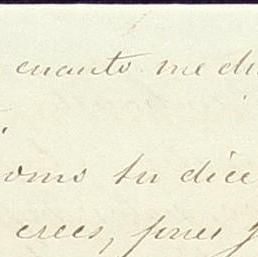 cuanto me di
omo tu dice
crees, pues